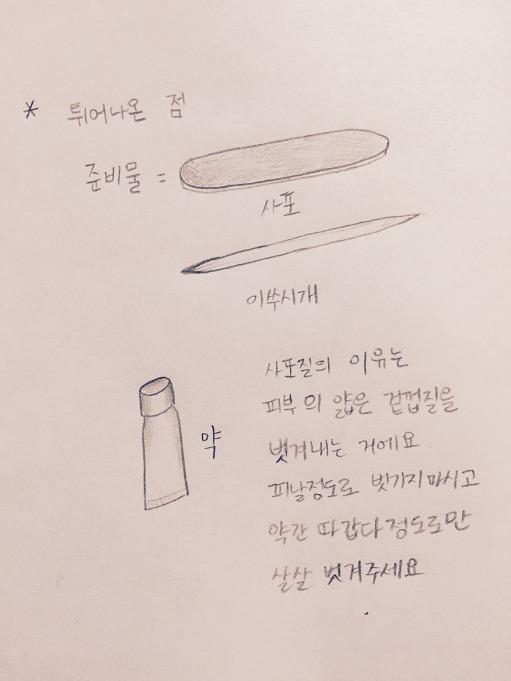 * 튀어나온 점
준비물 =
사포
이쑤시개
약
사포질의 이유는
피부의 얇은 겉껍질을
벗겨내는 거에요.
피날정도로 벗기지마시고
약간 따갑다정도로만
살살 벗겨주세요